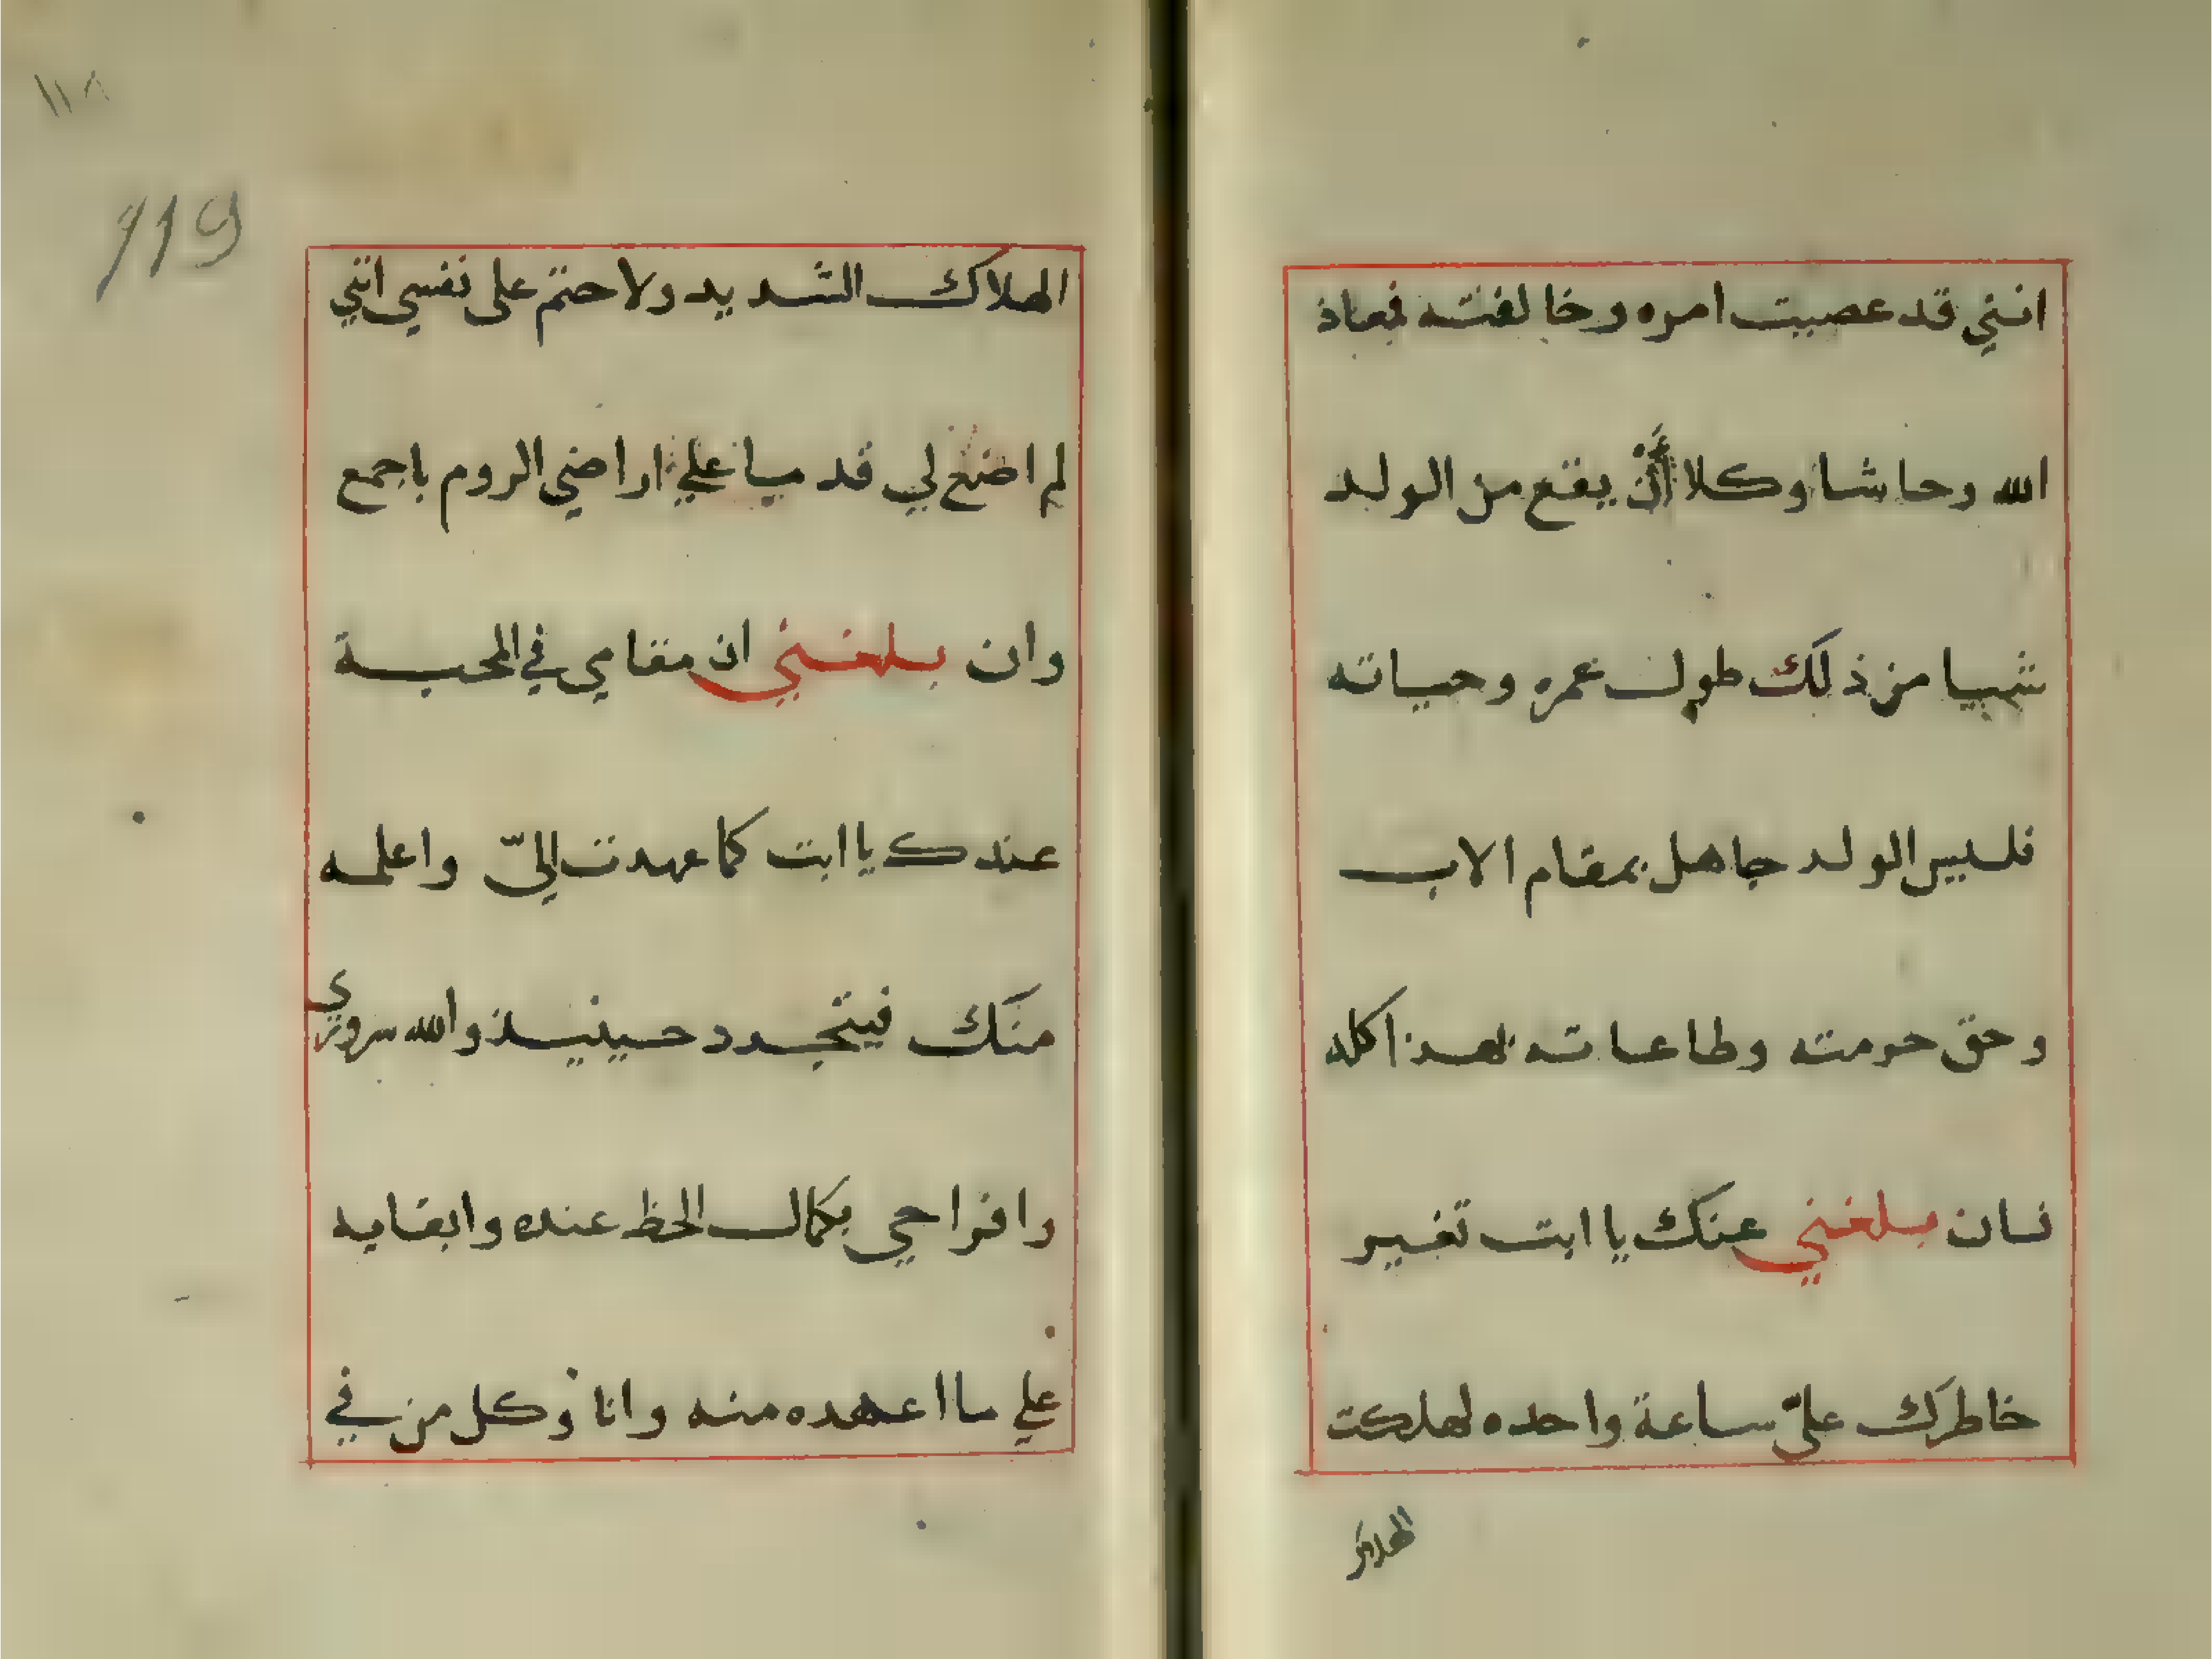 انني قد عصيت امره وخالفته فمعاذ
الله وحاشا وكلا أن يقع من الولد
شييا من ذلك طول عمره وحياته
فليس الولد جاهل بمقام الاب
وحق حرمته وطاعاته بعد اكله
فان بلغني عنك يا ابت تغير
خاطرك عليّ ساعة واحده لهلكت
الهلاك
١١٨
119
الهلاك الشديد ولاحتم على نفسي انني
لم اضع لي قدميا علي اراضي الروم باجمع
وان بلغني ان مقامي في المحبة
عندك يا ابت كما عهدت اليّ واعلمه
منك فيتجدد حينيذ والله سروري
وافراحي بكمال الحظ عنده وابقايه
علي ما اعهده منه وانا وكل من في